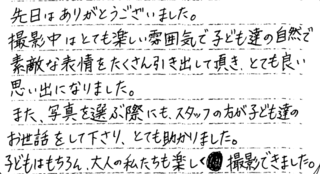 先日はありがとうございました。
撮影中はとても楽しい雰囲気で子ども達の自然で
素敵な表情をたくさん引き出して頂き、とても良い
思い出になりました。
また、写真を選ぶ際にも、スタッフの方が子ども達の
お世話をして下さり、とても助かりました。
子どもはもちろん、大人の私たちも楽しく撮影できました。